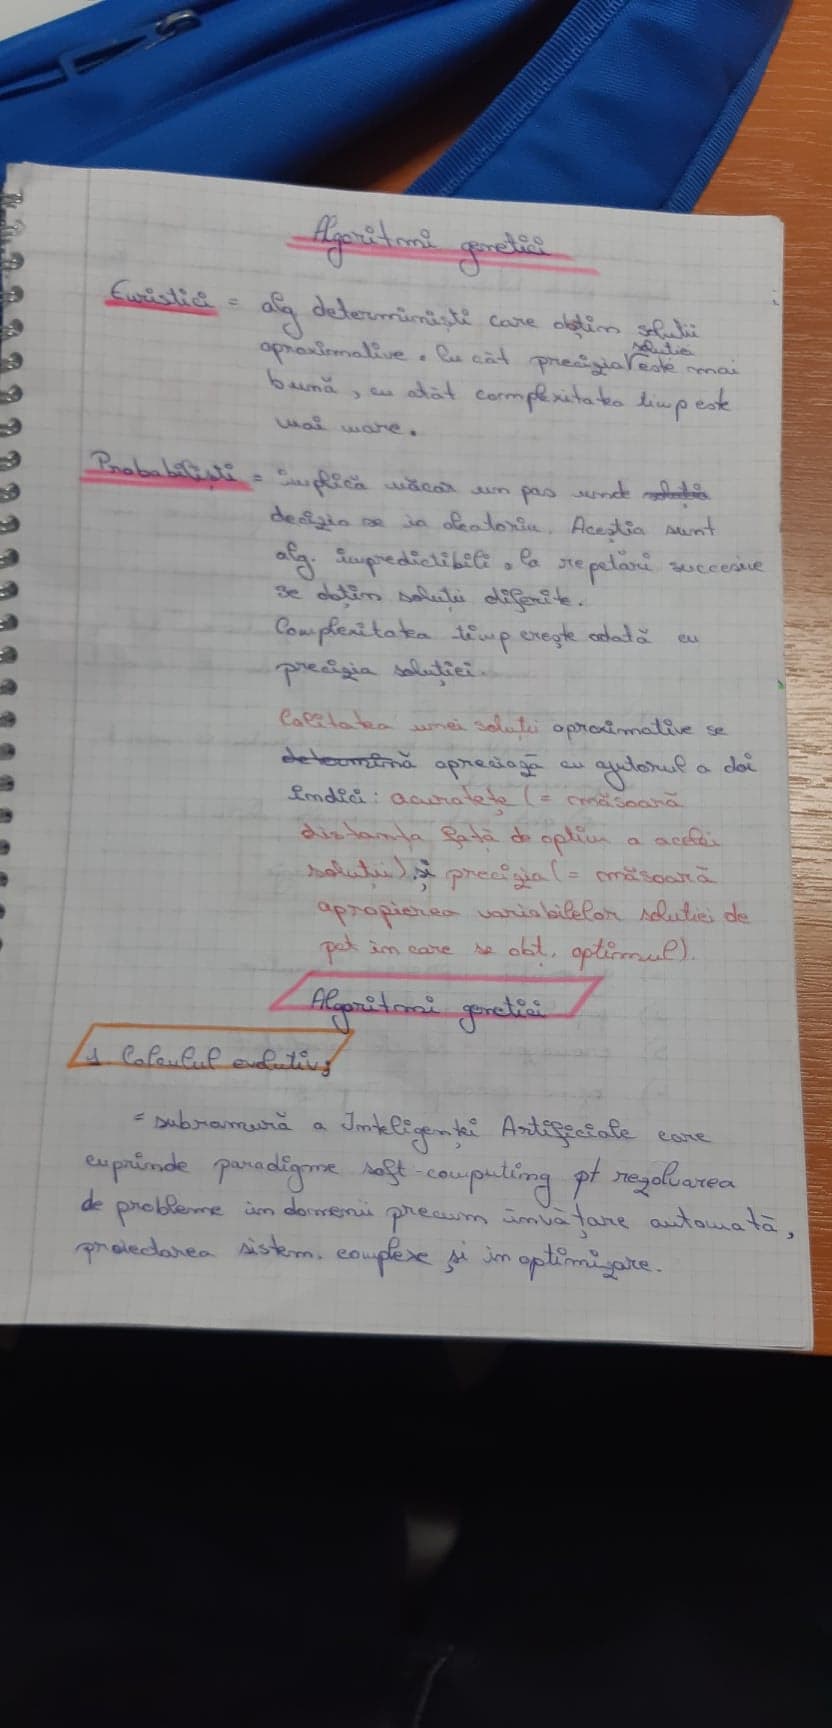 Algoritmi genetici
Euristici = alg determiniști care obțin soluții
aproximative. Cu cât precizia soluție este mai
bună, cu atât complexitatea timp este
mai mare.
Probabiliști = implică măcar un pas unde soluția
decizia se ia aleatoriu. Aceștia sunt
alg. impredictibili, la repetări succesive
se obțin soluții diferite.
Complexitatea timp crește odată cu
precizia soluției.
Calitatea unei soluții aproximative se
determină apreciază cu ajutorul a doi
indici: acuratețe (= măsoară
distanța față de optim a acelei
soluții) și precizia (= măsoară
apropierea variabilelor soluției de
pct în care se obț. optimul).
Algoritmi genetici
1 Calculul evolutiv
= subramură a Inteligenței Artificiale care
cuprinde paradigme soft-computing pt rezolvarea
de probleme în domenii precum învățare automată,
proiectarea sistem. complexe și în optimizare.